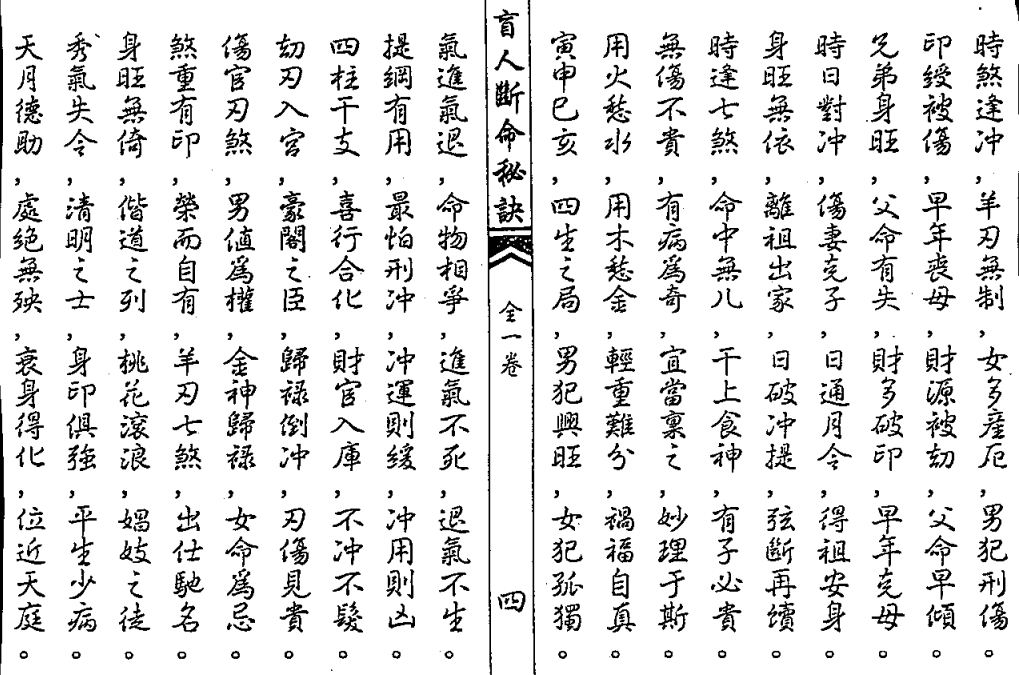 時煞逢冲，羊刃無制，女多產厄，男犯刑傷。
印綬被傷，早年喪母，財源被劫，父命早傾。
兄弟身旺，父命有失，財多破印，早年克母。
時日對冲，傷妻克子，日通月令，得祖安身。
身旺無依，離祖出家，日破冲提，弦斷再續。
時逢七煞，命中無儿，干上食神，有子必貴。
無傷不貴，有病爲奇，宜當稟之，妙理于斯。
用火愁水，用木愁金，輕重難分，禍福自真。
寅申巳亥，四生之局，男犯興旺，女犯孤獨。
盲人斷命秘訣
全一卷
四
氣進氣退，命物相爭，進氣不死，退氣不生。
提綱有用，最怕刑冲，冲運則緩，冲用則凶。
四柱干支，喜行合化，財官入庫，不冲不髮。
劫刃入宮，豪閣之臣，歸禄倒冲，刃傷見貴。
傷官刃煞，男值爲權，金神歸禄，女命爲忌。
煞重有印，榮而自有，羊刃七煞，出仕馳名。
身旺無倚，偕道之列，桃花滾浪，娼妓之徒。
秀氣失令，清明之士，身印俱強，平生少病。
天月德助，處絕無殃，衰身得化，位近天庭。